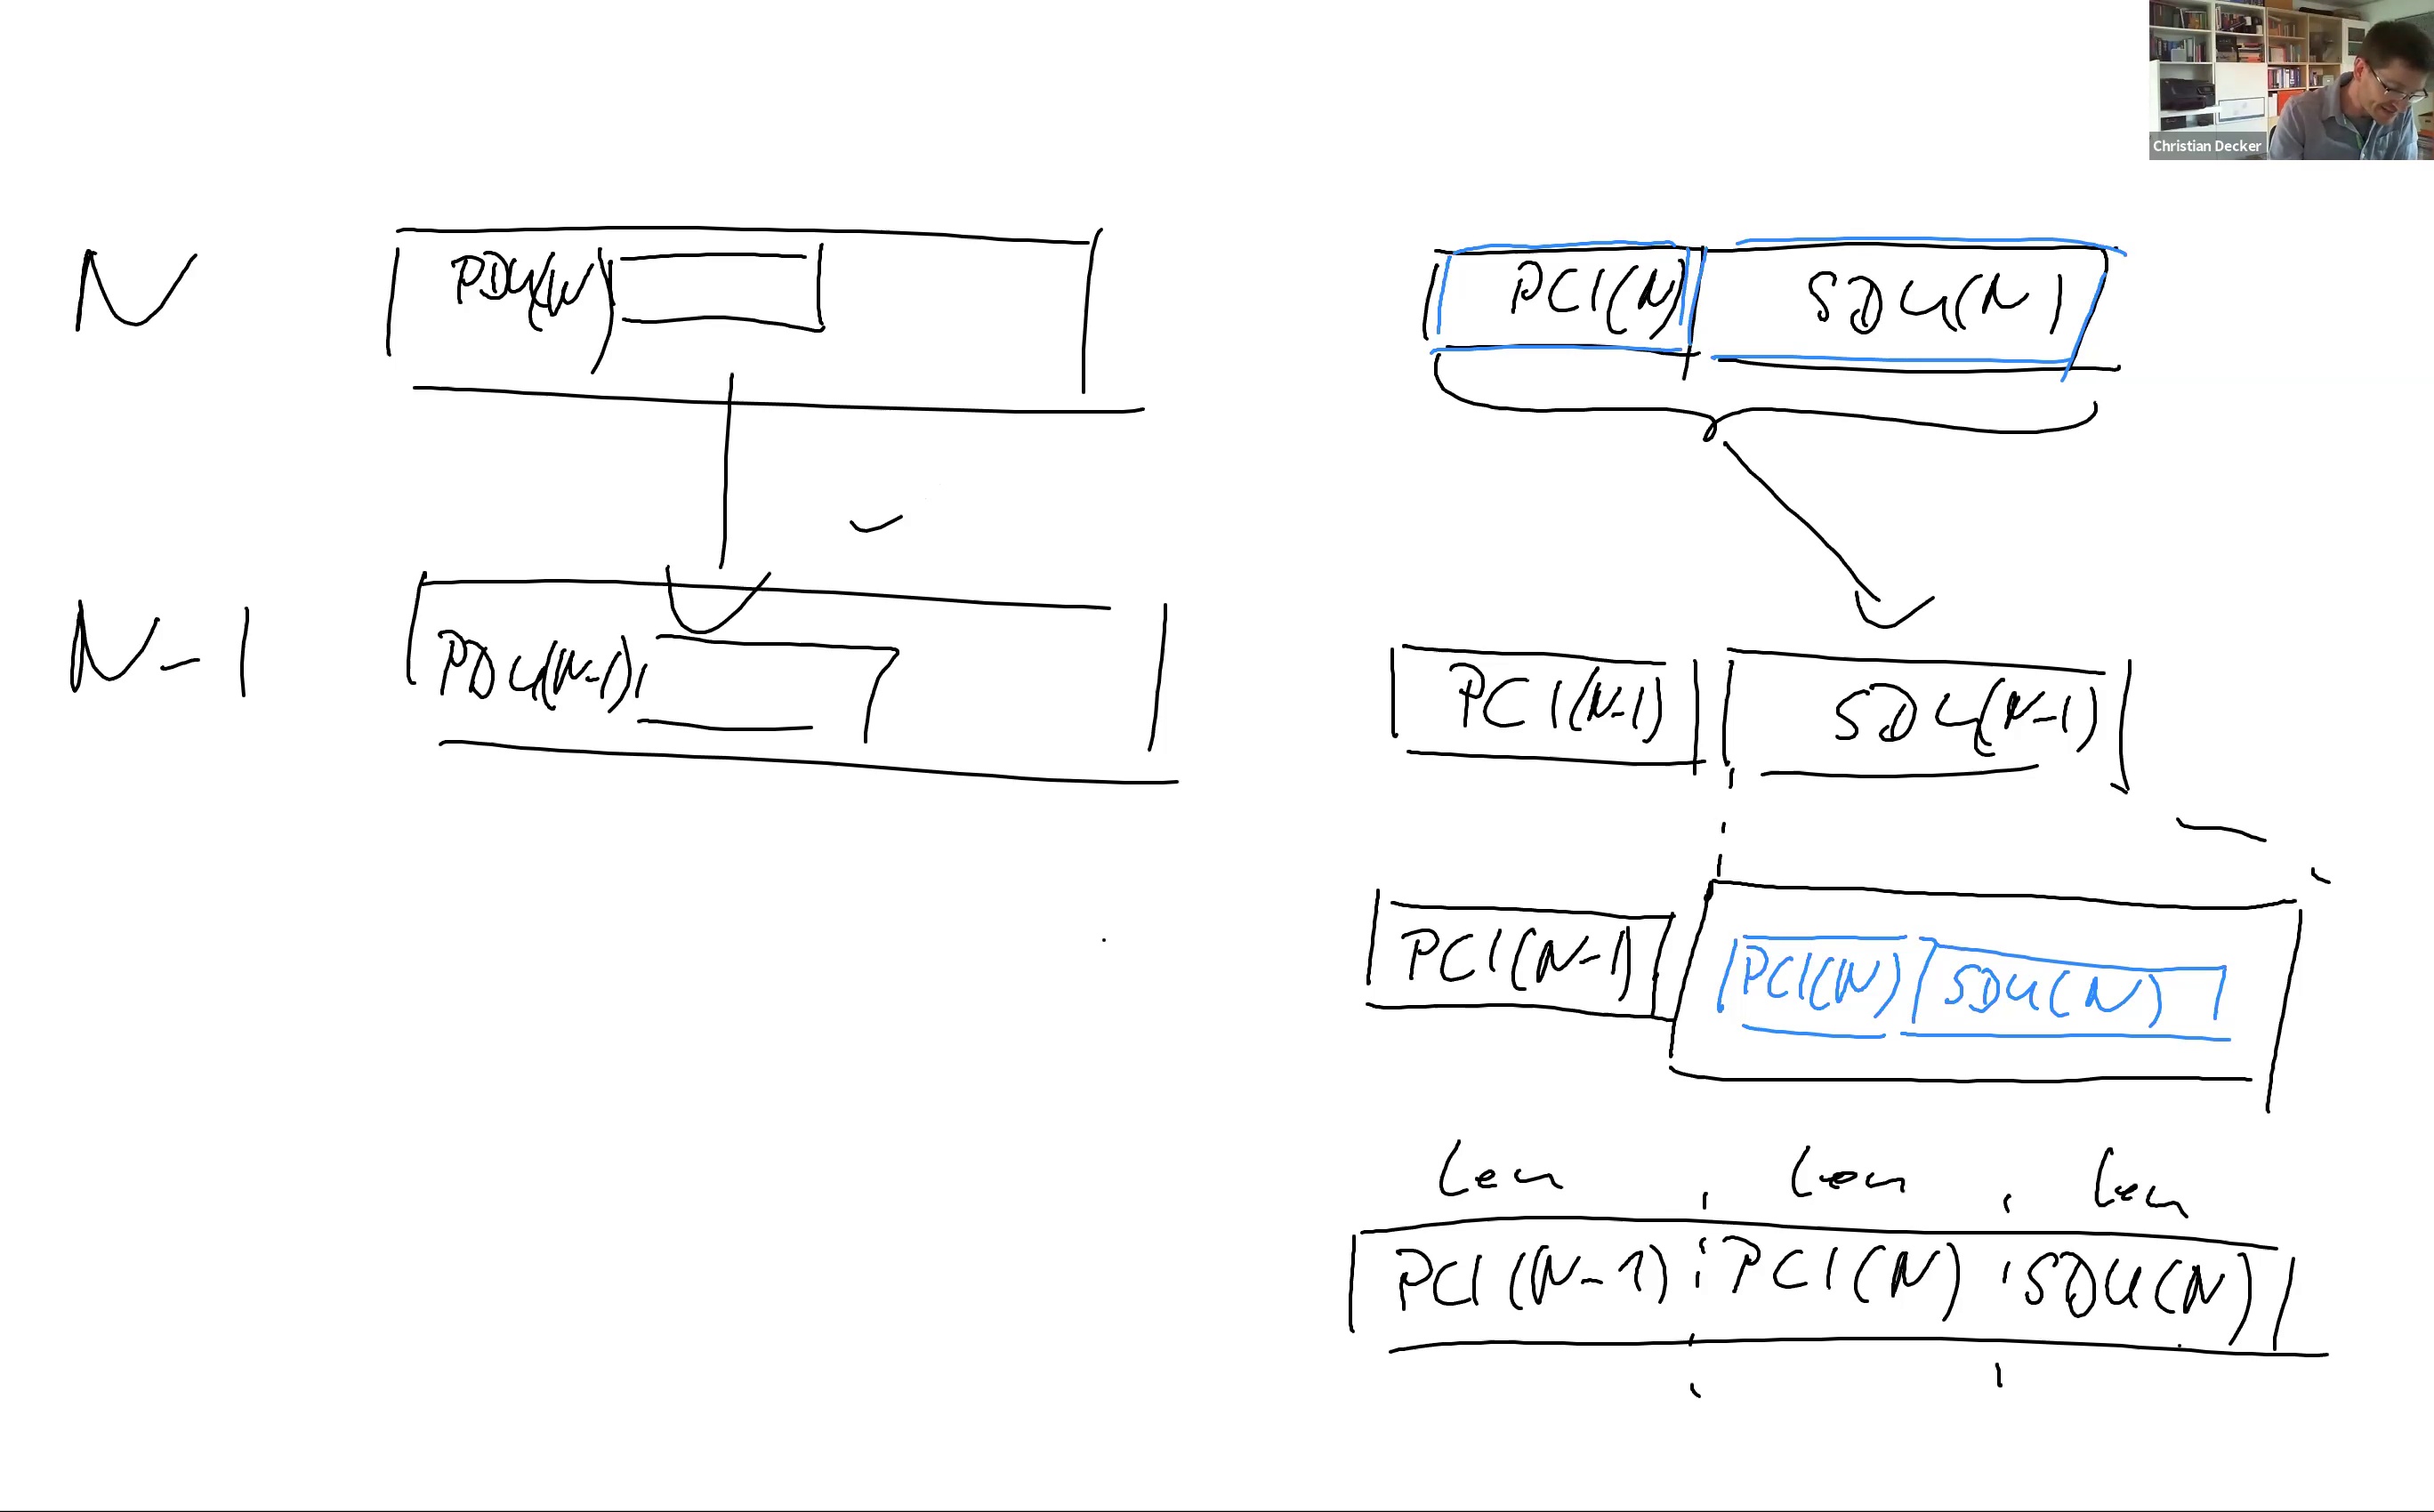 Christian Decker
N
PDU(N)
PCI(N) SDU(N)
N-1
PDU(N-1)
PCI(N-1) SDU(N-1)
PCI(N-1) PCI(N) SDU(N)
Len Len Len
PCI(N-1) PCI(N) SDU(N)